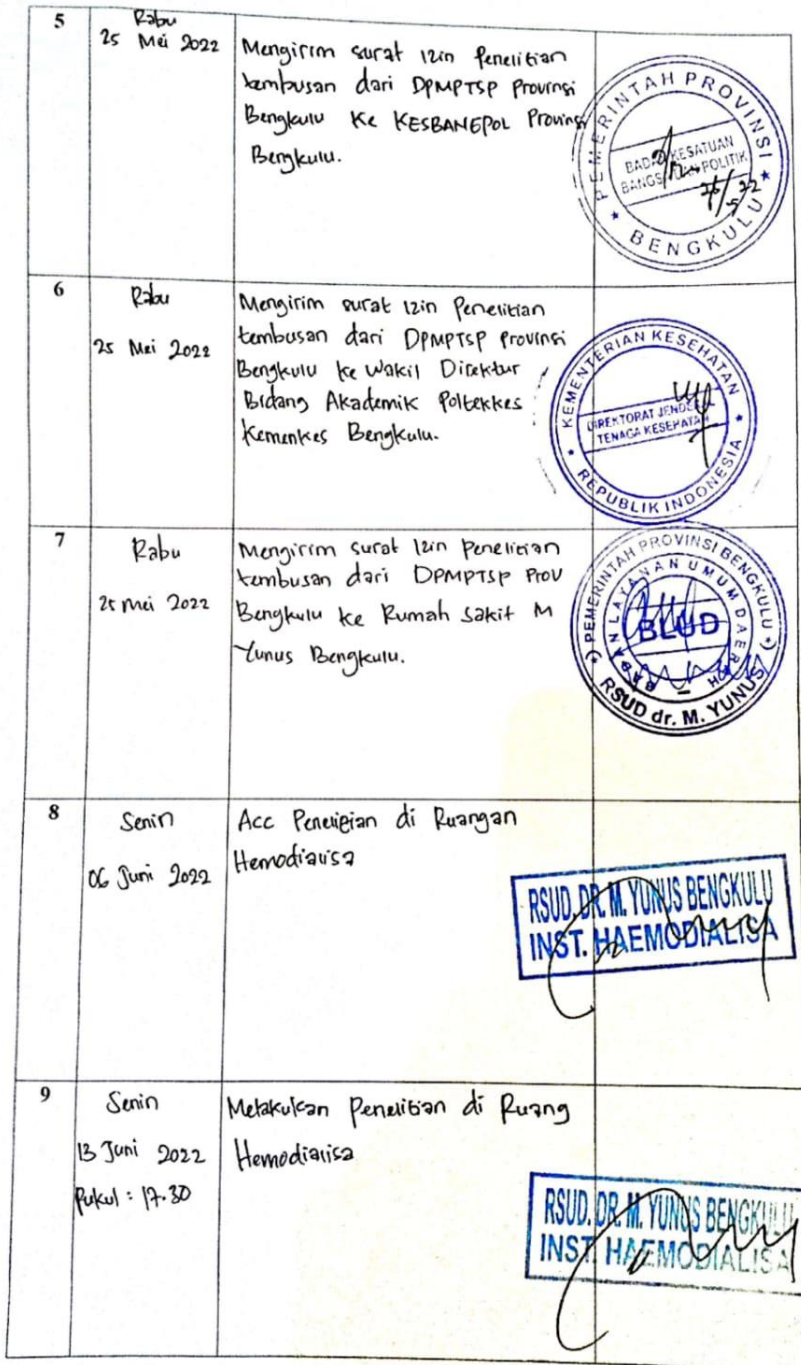 5
Rabu
25 Mei 2022
Mengirim surat izin Penelitian
tembusan dari DPMPTSP Provinsi
Bengkulu Ke KESBANGPOL Provinsi
Bengkulu.
PEMERINTAH PROVINSI
BADAN KESATUAN
BANGSA DAN POLITIK
BENGKULU
6
Rabu
25 Mei 2022
Mengirim surat izin Penelitian
tembusan dari DPMPTSP Provinsi
Bengkulu ke Wakil Direktur
Bidang Akademik Poltekkes
Kemenkes Bengkulu.
KEMENTERIAN KESEHATAN
DIREKTORAT JENDERAL
TENAGA KESEHATAN
REPUBLIK INDONESIA
7
Rabu
25 mei 2022
Mengirim surat izin Penelitian
tembusan dari DPMPTSP Prov
Bengkulu ke Rumah Sakit M
Yunus Bengkulu.
PEMERINTAH PROVINSI BENGKULU
BADAN LAYANAN UMUM DAERAH
BLUD
RSUD dr. M. YUNUS
8
Senin
06 Juni 2022
Acc Penelitian di Ruangan
Hemodialisa
RSUD. DR. M. YUNUS BENGKULU
INST. HAEMODIALISA
9
Senin
13 Juni 2022
Pukul : 17.30
Melakukan Penelitian di Ruang
Hemodialisa
RSUD. DR. M. YUNUS BENGKULU
INST. HAEMODIALISA